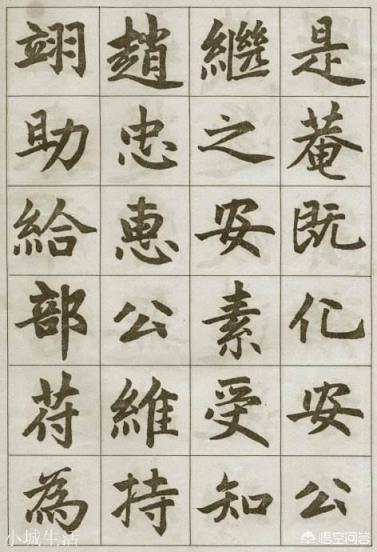 是菴既化安公
繼之安素受知
趙忠惠公維持
翊助給部符為
小城生活
悟空问答